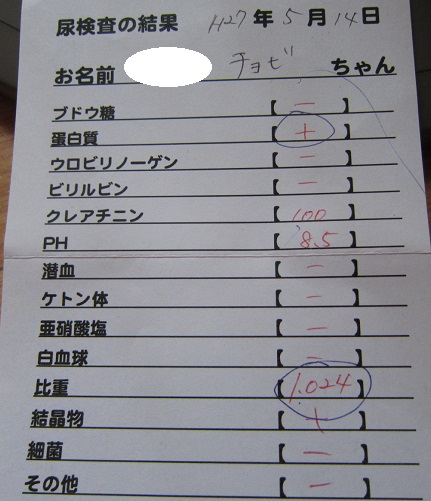 尿検査の結果 H27年5月14日
お名前 チョビ ちゃん
ブドウ糖 【 － 】
蛋白質 【 ＋ 】
ウロビリノーゲン 【 － 】
ビリルビン 【 － 】
クレアチニン 【 100 】
PH 【 8.5 】
潜血 【 － 】
ケトン体 【 － 】
亜硝酸塩 【 － 】
白血球 【 － 】
比重 【 1.024 】
結晶物 【 ＋ 】
細菌 【 － 】
その他 【 － 】